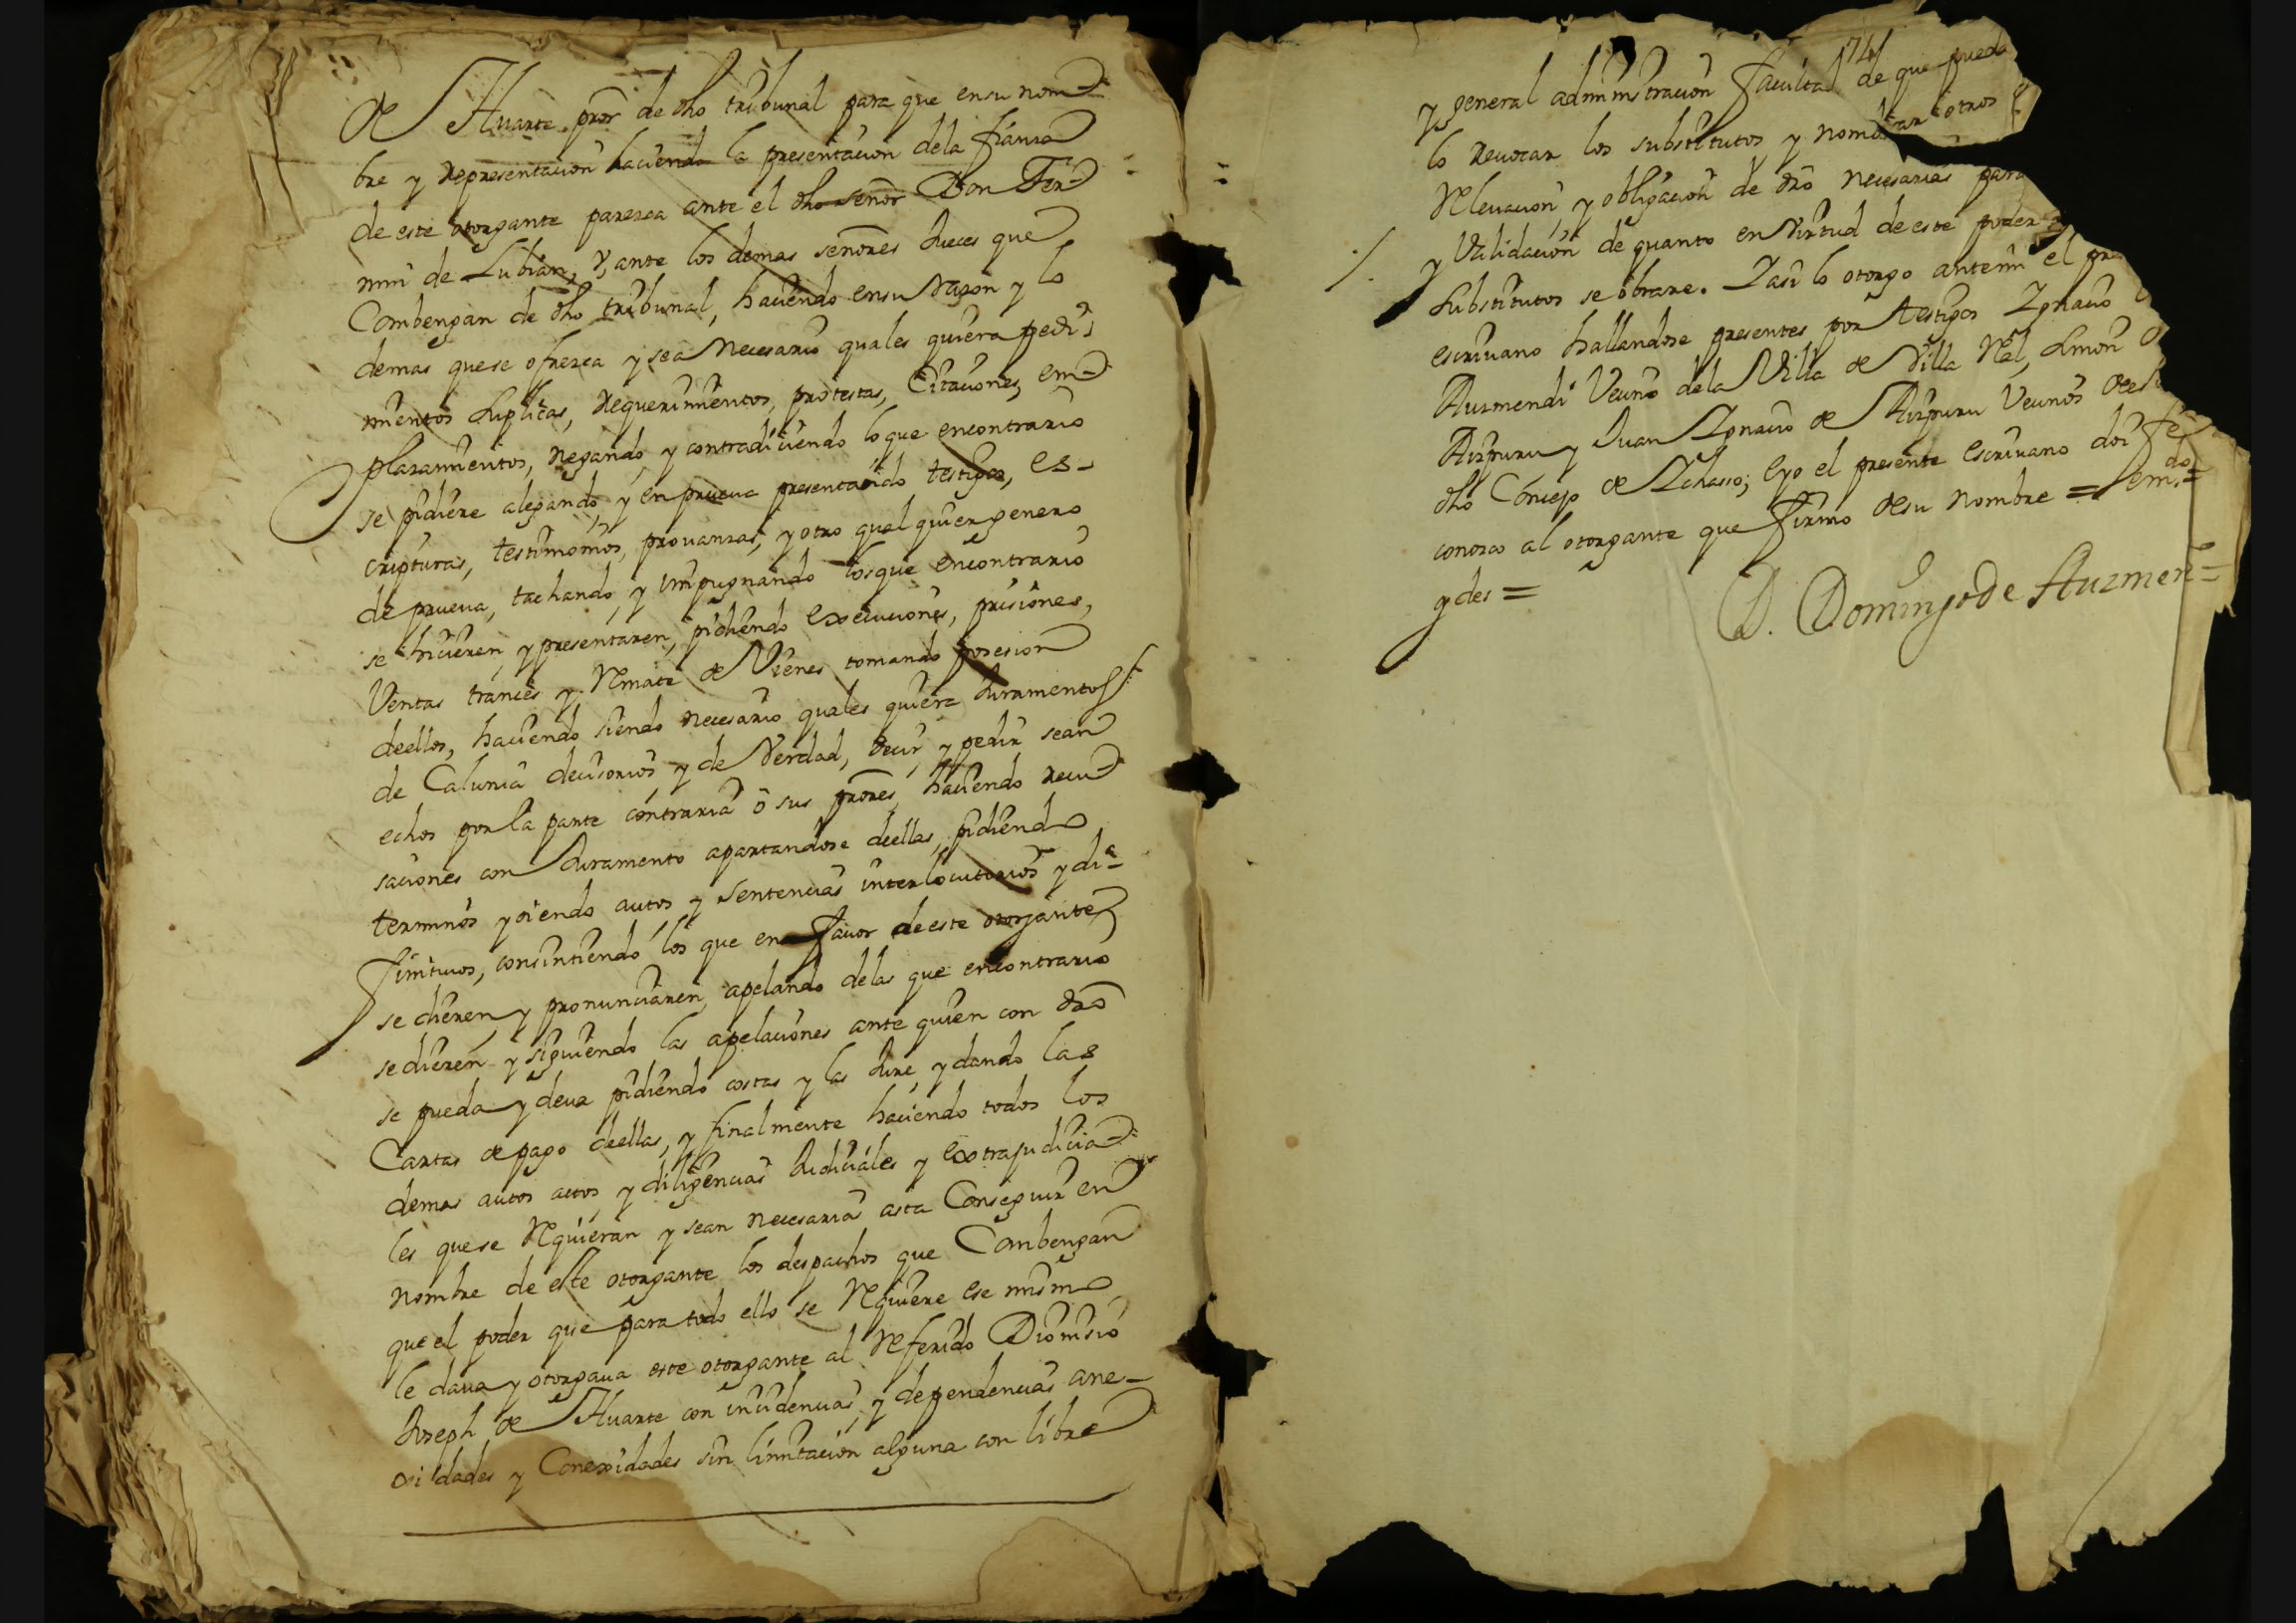 de Huarte pror de dho tribunal para que ensu nom-
bre y representacion haciendo la presentacion dela fianza
de este otorgante parezca ante el dho señor Don Fer-
min de Lubian, y ante los demas señores Jueces que
Combengan de dho tribunal, haciendo ensu razon y lo
demas quese ofrezca y sea necesario quales quiera pedi-
mientos suplicas, requerimientos, protestas, Citaciones, em-
plazamientos, negando, y contradiciendo loque encontrario
se pidiere alegando, y en prueva presentando testigos, es-
cripturas, testimonios, provanzas, y otro qual quier genero
de prueva, tachando, y impugnando losque encontrario
se hicieren, y presentaren, pidiendo Execuciones, prisiones,
Ventas trances y Remate de Vienes tomando posesion
deellos, haciendo siendo necesario quales quiera Juramentos
de Calunia decisorios, y de Verdad, decir, y pedir sean
echos por la parte contraria ó sus prores, haciendo recu-
saciones con Juramento apartandose deellas, pidiendo
terminos y oiendo autos y sentencias interlocutorios y di-
finitivos, consintiendo los que en favor deeste otorgante
se dieren, y pronunciaren, apelando delas que encontrario
sedieren y siguiendo las apelaciones ante quien con dro
se pueda y deva pidiendo costas y las Jure, y dando las
Cartas de pago deellas, y finalmente haciendo todos los
demas autos actos, y diligencias Judiciales y extrajudicia-
les quese Requieran y sean necesarias asta Conseguir en
nombre de este otorgante los despachos que Combengan
que el poder que para todo ello se Requiere ese mismo
le dava y otorgava este otorgante al Referido Dionisio
Joseph de Huarte con incidencias, y dependencias ane-
xidades y Conexidades sin limitacion alguna con libre
74
y general administracion facultad de que pueda
lo revocar los substitutos y nombrar otros
Relevacion, y obligacion de dro necesarias para
y Validacion de quanto en Virtud de este poder
substitutos se obrare. Y asi lo otorgo antemi el
escrivano hallandose presentes por testigos Ygnacio
Auzmendi Vecino dela Villa de Villa Rel, Simon
Aizpuru y Juan Ygnacio de Aizpuru Vecinos deeste
dho Concejo de Ichasso; e yo el presente escrivano doi fe
conozco al otorgante que firmo desu nombre = emdo
y des =
D. Domingo de Auzmen=